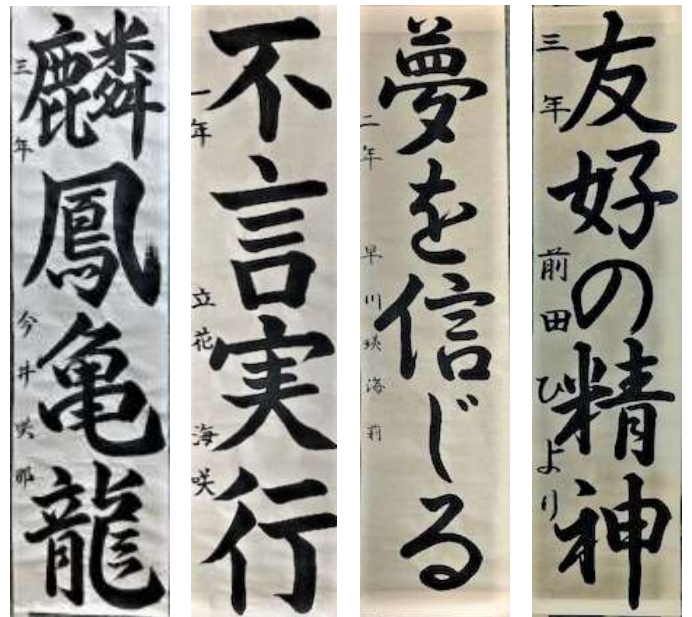 麟鳳亀龍
三年 今井咲那
不言実行
一年 立花海咲
夢を信じる
二年 早川
友好の精神
三年 前田ひより